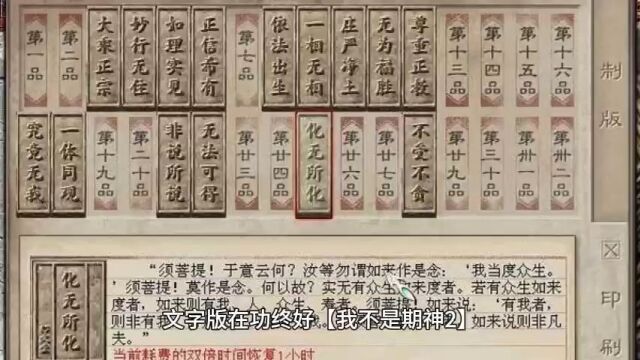 第一品
第二品
大乘正宗
妙行无住
如理实见
正信希有
第七品
依法出生
一相无相
庄严净土
无为福胜
尊重正教
第十三品
第十四品
第十五品
第十六品
究竟无我
一体同观
第十九品
第二十品
非说所说
无法可得
第廿三品
第廿四品
化无所化
第廿六品
第廿七品
不受不贪
第廿九品
第三十品
第卅一品
第卅二品
制版
印刷
化无所化
“须菩提！于意云何？汝等勿谓如来作是念：‘我当度众生。
’须菩提！莫作是念。何以故？实无有众生如来度者。若有众生如来
度者，如来则有我、人、众生、寿者。须菩提！如来说：‘有我者，
则非有我
说则非凡
夫。”
当前耗费的双倍时间恢复1小时
文字版在功终好【我不是期神2】